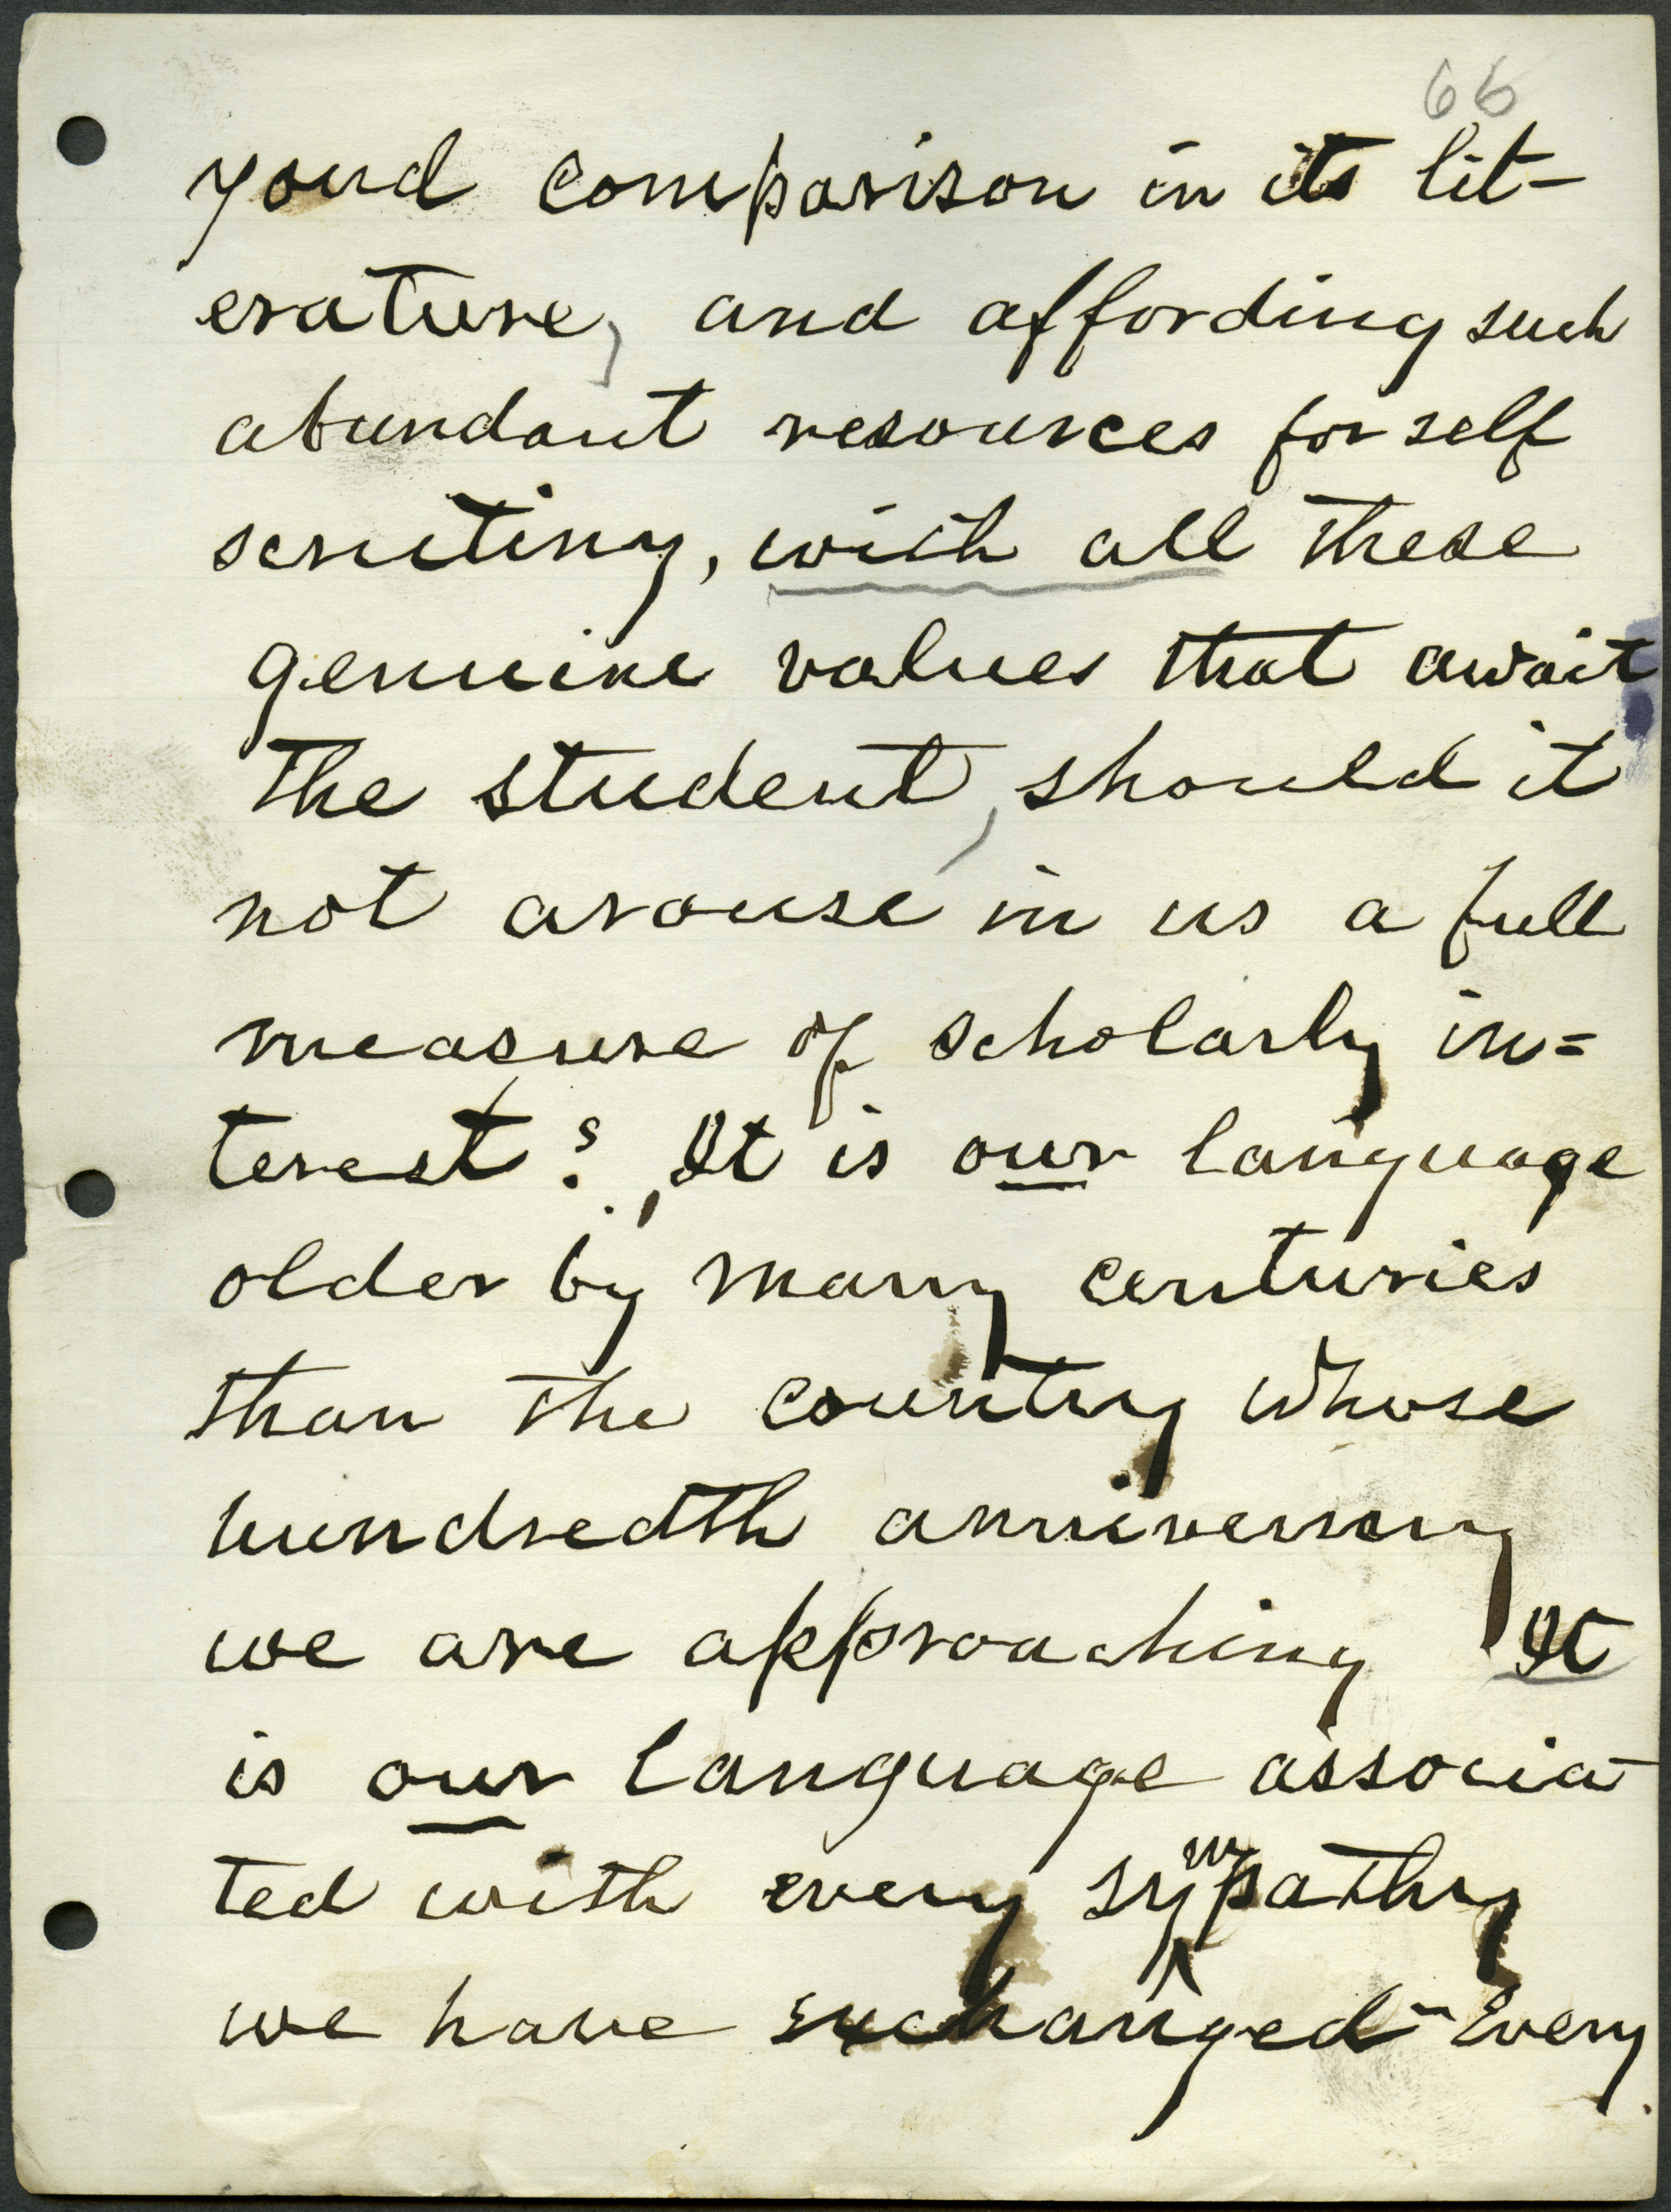 66
yond comparison in its lit-
erature, and affording such
abundant resources for self
scrutiny, with all these
genuine values that await
the student, should it
not arouse in us a full
measure of scholarly in=
terest? It is our language
older by many centuries
than the country whose
hundredth anniversary
we are approaching It
is our language associa-
ted with every sympathy
we have exchanged - Every